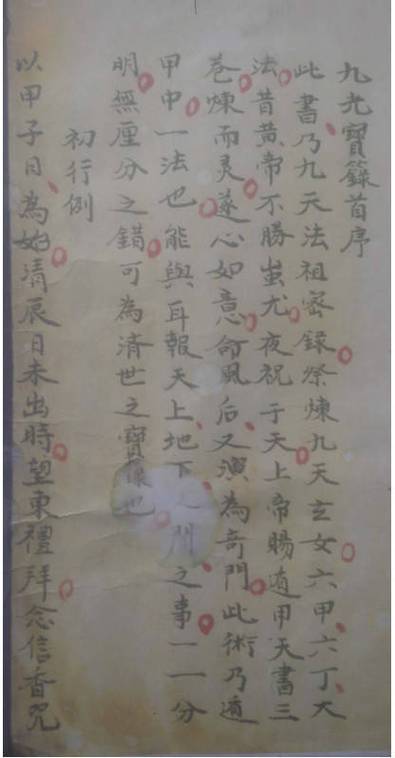 九光寶籙首序
此書乃九天法祖密録祭煉九天玄女六甲六丁大
法昔黄帝不勝蚩尤夜祝于天上帝賜遁甲天書三
卷煉而灵遂心如意命風后又演為奇門此術乃遁
甲中一法也能與耳報天上地下人間之事一一分
明無厘分之錯可為濟世之寶 也
初行例
以甲子日為始清辰日未出時望東禮拜念信香咒